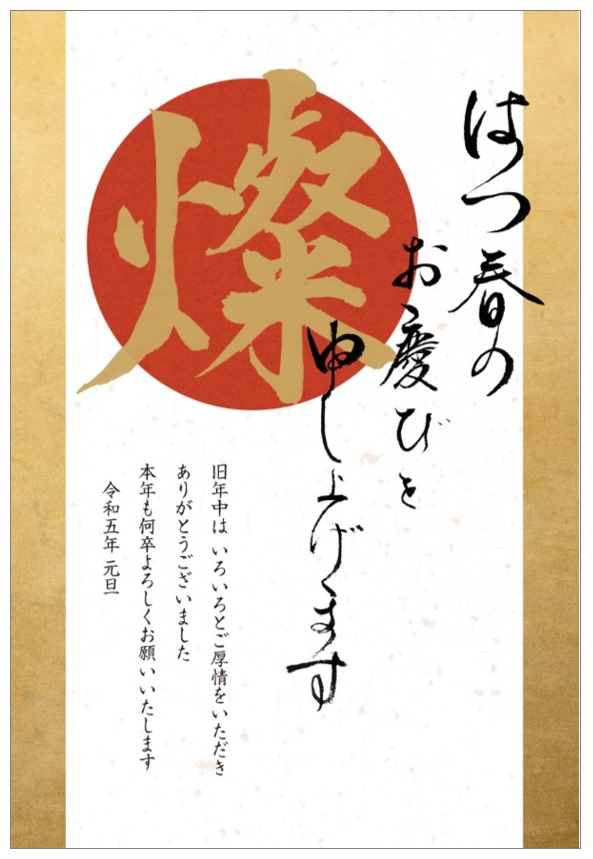 はつ春の
お慶びを
申し上げます
燦
旧年中は いろいろとご厚情をいただき
ありがとうございました
本年も何卒よろしくお願いいたします
令和五年 元旦